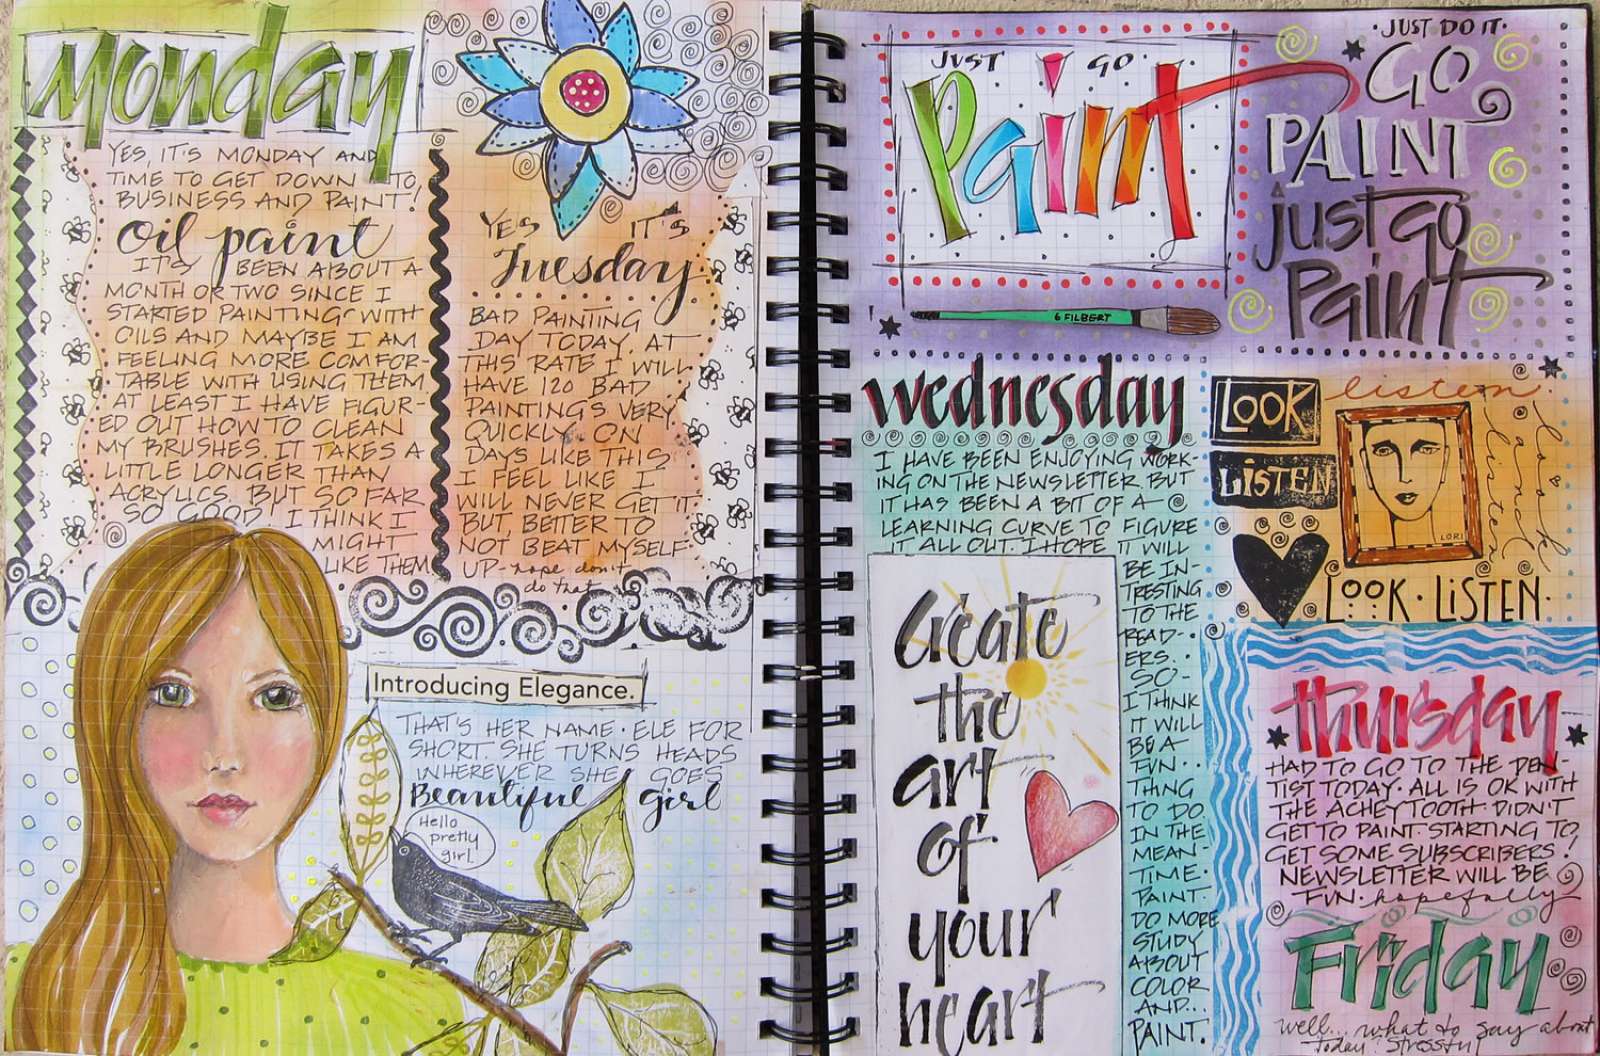 Monday
YES, IT'S MONDAY AND
TIME TO GET DOWN TO
BUSINESS AND PAINT!
Oil paint
IT'S BEEN ABOUT A
MONTH OR TWO SINCE I
STARTED PAINTING WITH
OILS AND MAYBE I AM
FEELING MORE COMFOR-
TABLE WITH USING THEM
AT LEAST I HAVE FIGUR-
ED OUT HOW TO CLEAN
MY BRUSHES. IT TAKES A
LITTLE LONGER THAN
ACRYLICS. BUT SO FAR
SO GOOD. I THINK I
MIGHT
LIKE THEM
YES IT'S
Tuesday
BAD PAINTING
DAY TODAY. AT
THIS RATE I WILL
HAVE 120 BAD
PAINTINGS VERY
QUICKLY. ON
DAYS LIKE THIS
I FEEL LIKE I
WILL NEVER GET IT
BUT, BETTER TO
NOT BEAT MYSELF
UP- nope don't
do that
Introducing Elegance.
THAT'S HER NAME · ELE FOR
SHORT. SHE TURNS HEADS
WHEREVER SHE GOES
Beautiful girl
Hello
pretty
girl
JUST GO
Paint
6 FILBERT
· JUST DO IT ·
GO
PAINT
just go
Paint
Wednesday
I HAVE BEEN ENJOYING WORK-
ING ON THE NEWSLETTER BUT
IT HAS BEEN A BIT OF A
LEARNING CURVE TO FIGURE
IT ALL OUT. I HOPE IT WILL
BE IN-
TRESTING
TO THE
READ-
ERS.
SO-
I THINK
IT WILL
BE A
FUN
THING
TO DO.
IN THE
MEAN-
TIME·
PAINT.
DO MORE
STUDY
ABOUT
COLOR
AND...
PAINT.
Create
the
art
of
your
heart
LOOK
LISTEN
listen
look
and
listen
LORI
LOOK · LISTEN ·
Thursday
HAD TO GO TO THE DEN-
TIST TODAY · ALL IS OK WITH
THE ACHEY TOOTH · DIDN'T
GET TO PAINT · STARTING TO
GET SOME SUBSCRIBERS!
NEWSLETTER WILL BE
FUN · hopefully
Friday
Well... what to say about
today: stressful